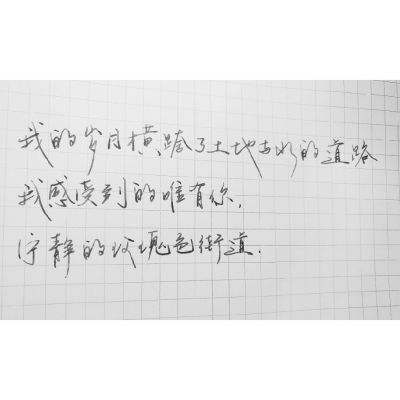 我的岁月横跨了土地与水的道路
我感受到的唯有你,
宁静的玫瑰色街道.